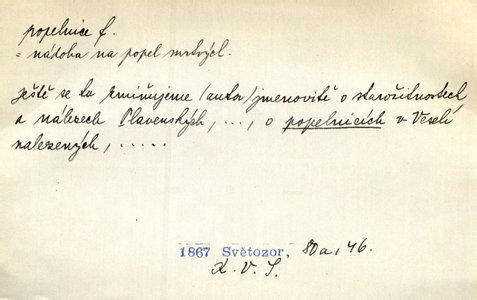 popelnice f.
= nádoba na popel mrtvých.
Ještě se tu zmiňujeme /autor/ jmenovitě o starožitnostech
a nálezech Slavenských, ..., o popelnicích v Veselí
nalezených, .....
1867 Světozor, 80a, 46.
K. V. S.